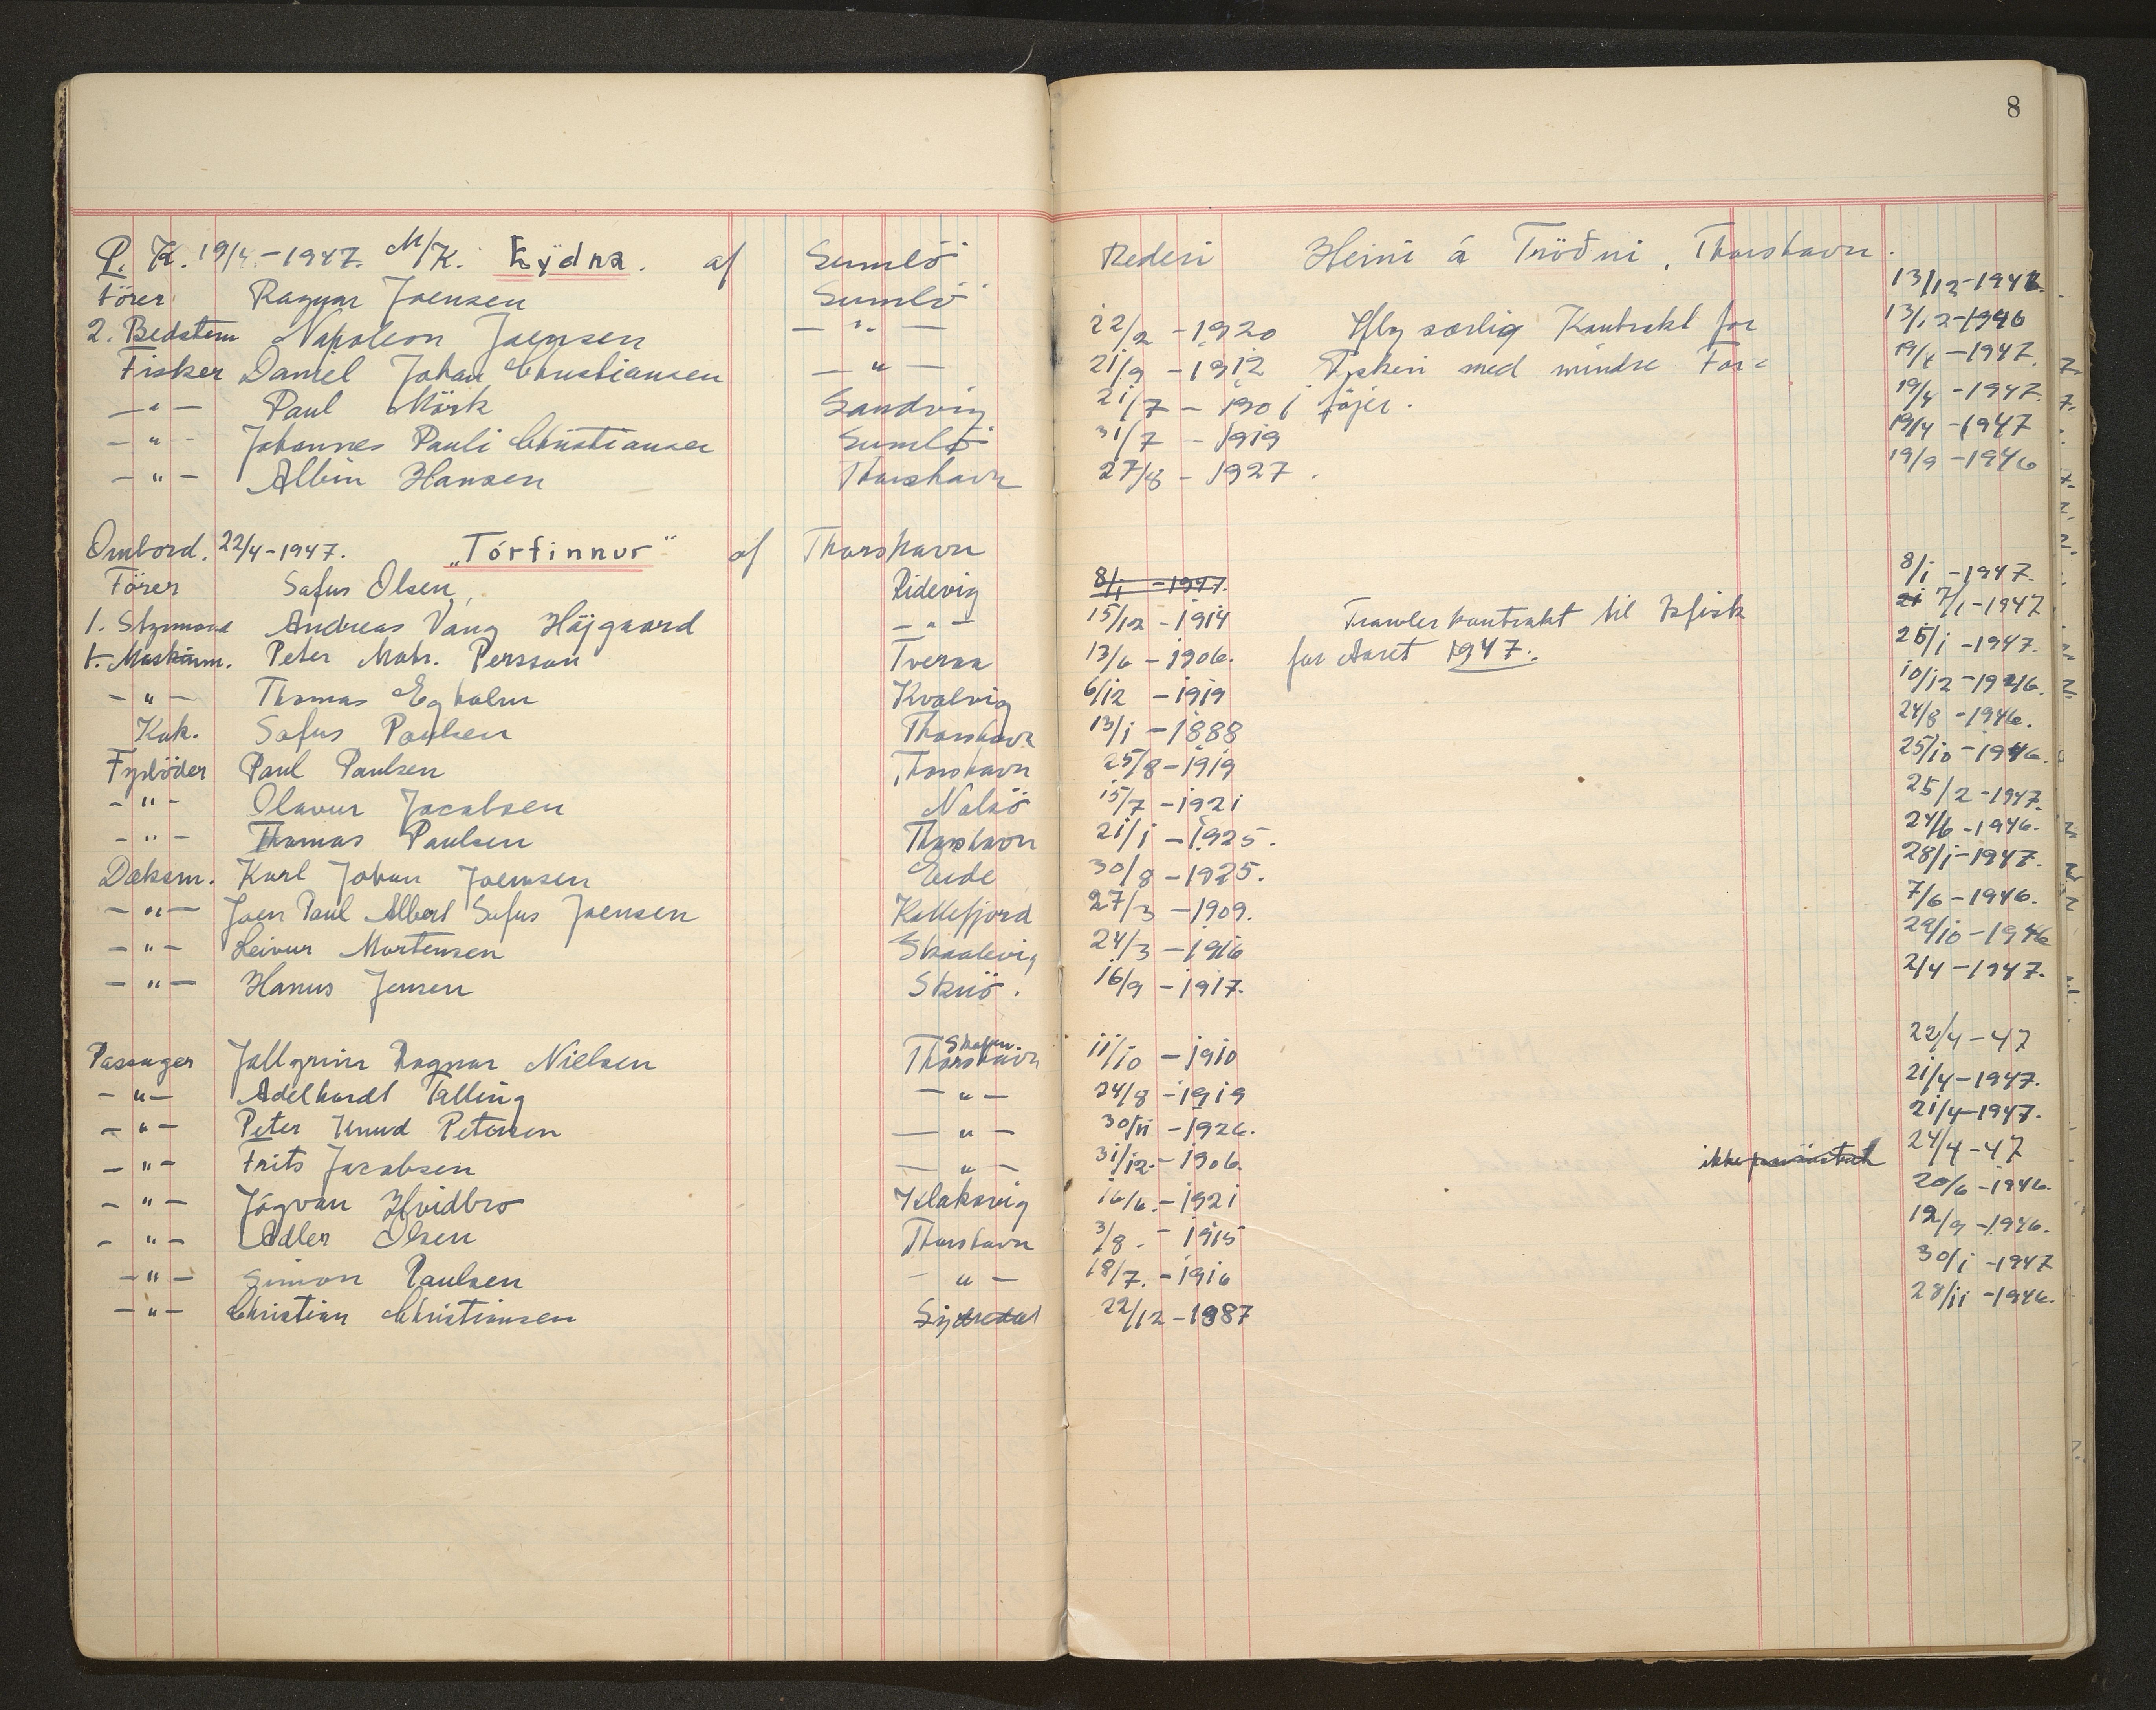 8
P. K. 19/4.-1947. M/K. Kydna. af Sumbö Rederi Heini á Tröðni, Thorshavn.
Förer Ragnar Joensen Sumbö 13/12-1946.
2. Bedstem Napoleon Joensen — " — 22/2 - 1920 Hlg særlig Kontrakt for 13/12-1946
Fisker Daniel Johan Christiansen — " — 21/9 - 1912 Fiskeri med mindre Far= 19/4 - 1947.
— " — Paul Mörk Sandvig 21/7 - 1901 töjer. 19/4 - 1947.
— " — Johannes Pauli Christiansen Sumbö 31/7 - 1919 19/4 - 1947
— " — Albin Hansen Thorshavn 27/8 - 1927. 19/9 - 1946
Ombord. 22/4-1947. „Tórfinnur" af Thorshavn
Förer Sofus Olsen, Ridevig 8/1 - 1947. 8/1 - 1947.
1. Styrmand Andreas Vang Højgaard — " — 15/12 - 1914 Trawlerkontrakt til Isfisk 7/1-1947
1. Maskinm. Peter Mohr. Persson Tveraa 13/6 - 1906. for Aaret 1947. 25/1 - 1947.
— " — Thomas Egholm Kvalvig 6/12 - 1919 10/12 - 1946.
Kok. Sofus Poulsen Thorshavn 13/1 - 1888 24/8 - 1946.
Fyrböder Paul Paulsen Thorshavn 25/8-1919 25/10 - 1946.
— " — Olavur Jacobsen Nolsö 15/7 - 1921 25/2 - 1947.
— " — Thomas Paulsen Thorshavn 21/1 - 1925. 24/6 - 1946.
Dæksm. Karl Johan Joensen Eide 30/8 - 1925. 28/1-1947.
— " — Joen Paul Albert Sofus Joensen Kollefjord 27/3 - 1909. 7/6 - 1946.
— " — Leivur Mortensen Skaalevig 24/3 - 1916 29/10 - 1946
— " — Hanus Jensen Skuö. 16/9 - 1917. 2/4 - 1947.
Passager Jallgrim Ragnar Nielsen Thorshavn 11/10 - 1910 22/4 - 47
— " — Adelhardt Telling — " — 24/8 - 1919 21/4-1947.
— " — Peter Knud Petersen — " — 30/11 - 1926. 21/4-1947.
— " — Frits Jacobsen — " — 31/12. - 1906. ikke 24/4 - 47
— " — Jógvan Hvidbro Klaksvig 16/6. - 1921 20/6 - 1946.
— " — Adler Olsen Thorshavn 3/8. - 1915 12/9 - 1946.
— " — Simon Paulsen — " — 18/7. - 1916 30/1 - 1947
— " — Christian Christiansen Sydredal 22/12 - 1987 28/11 - 1946.